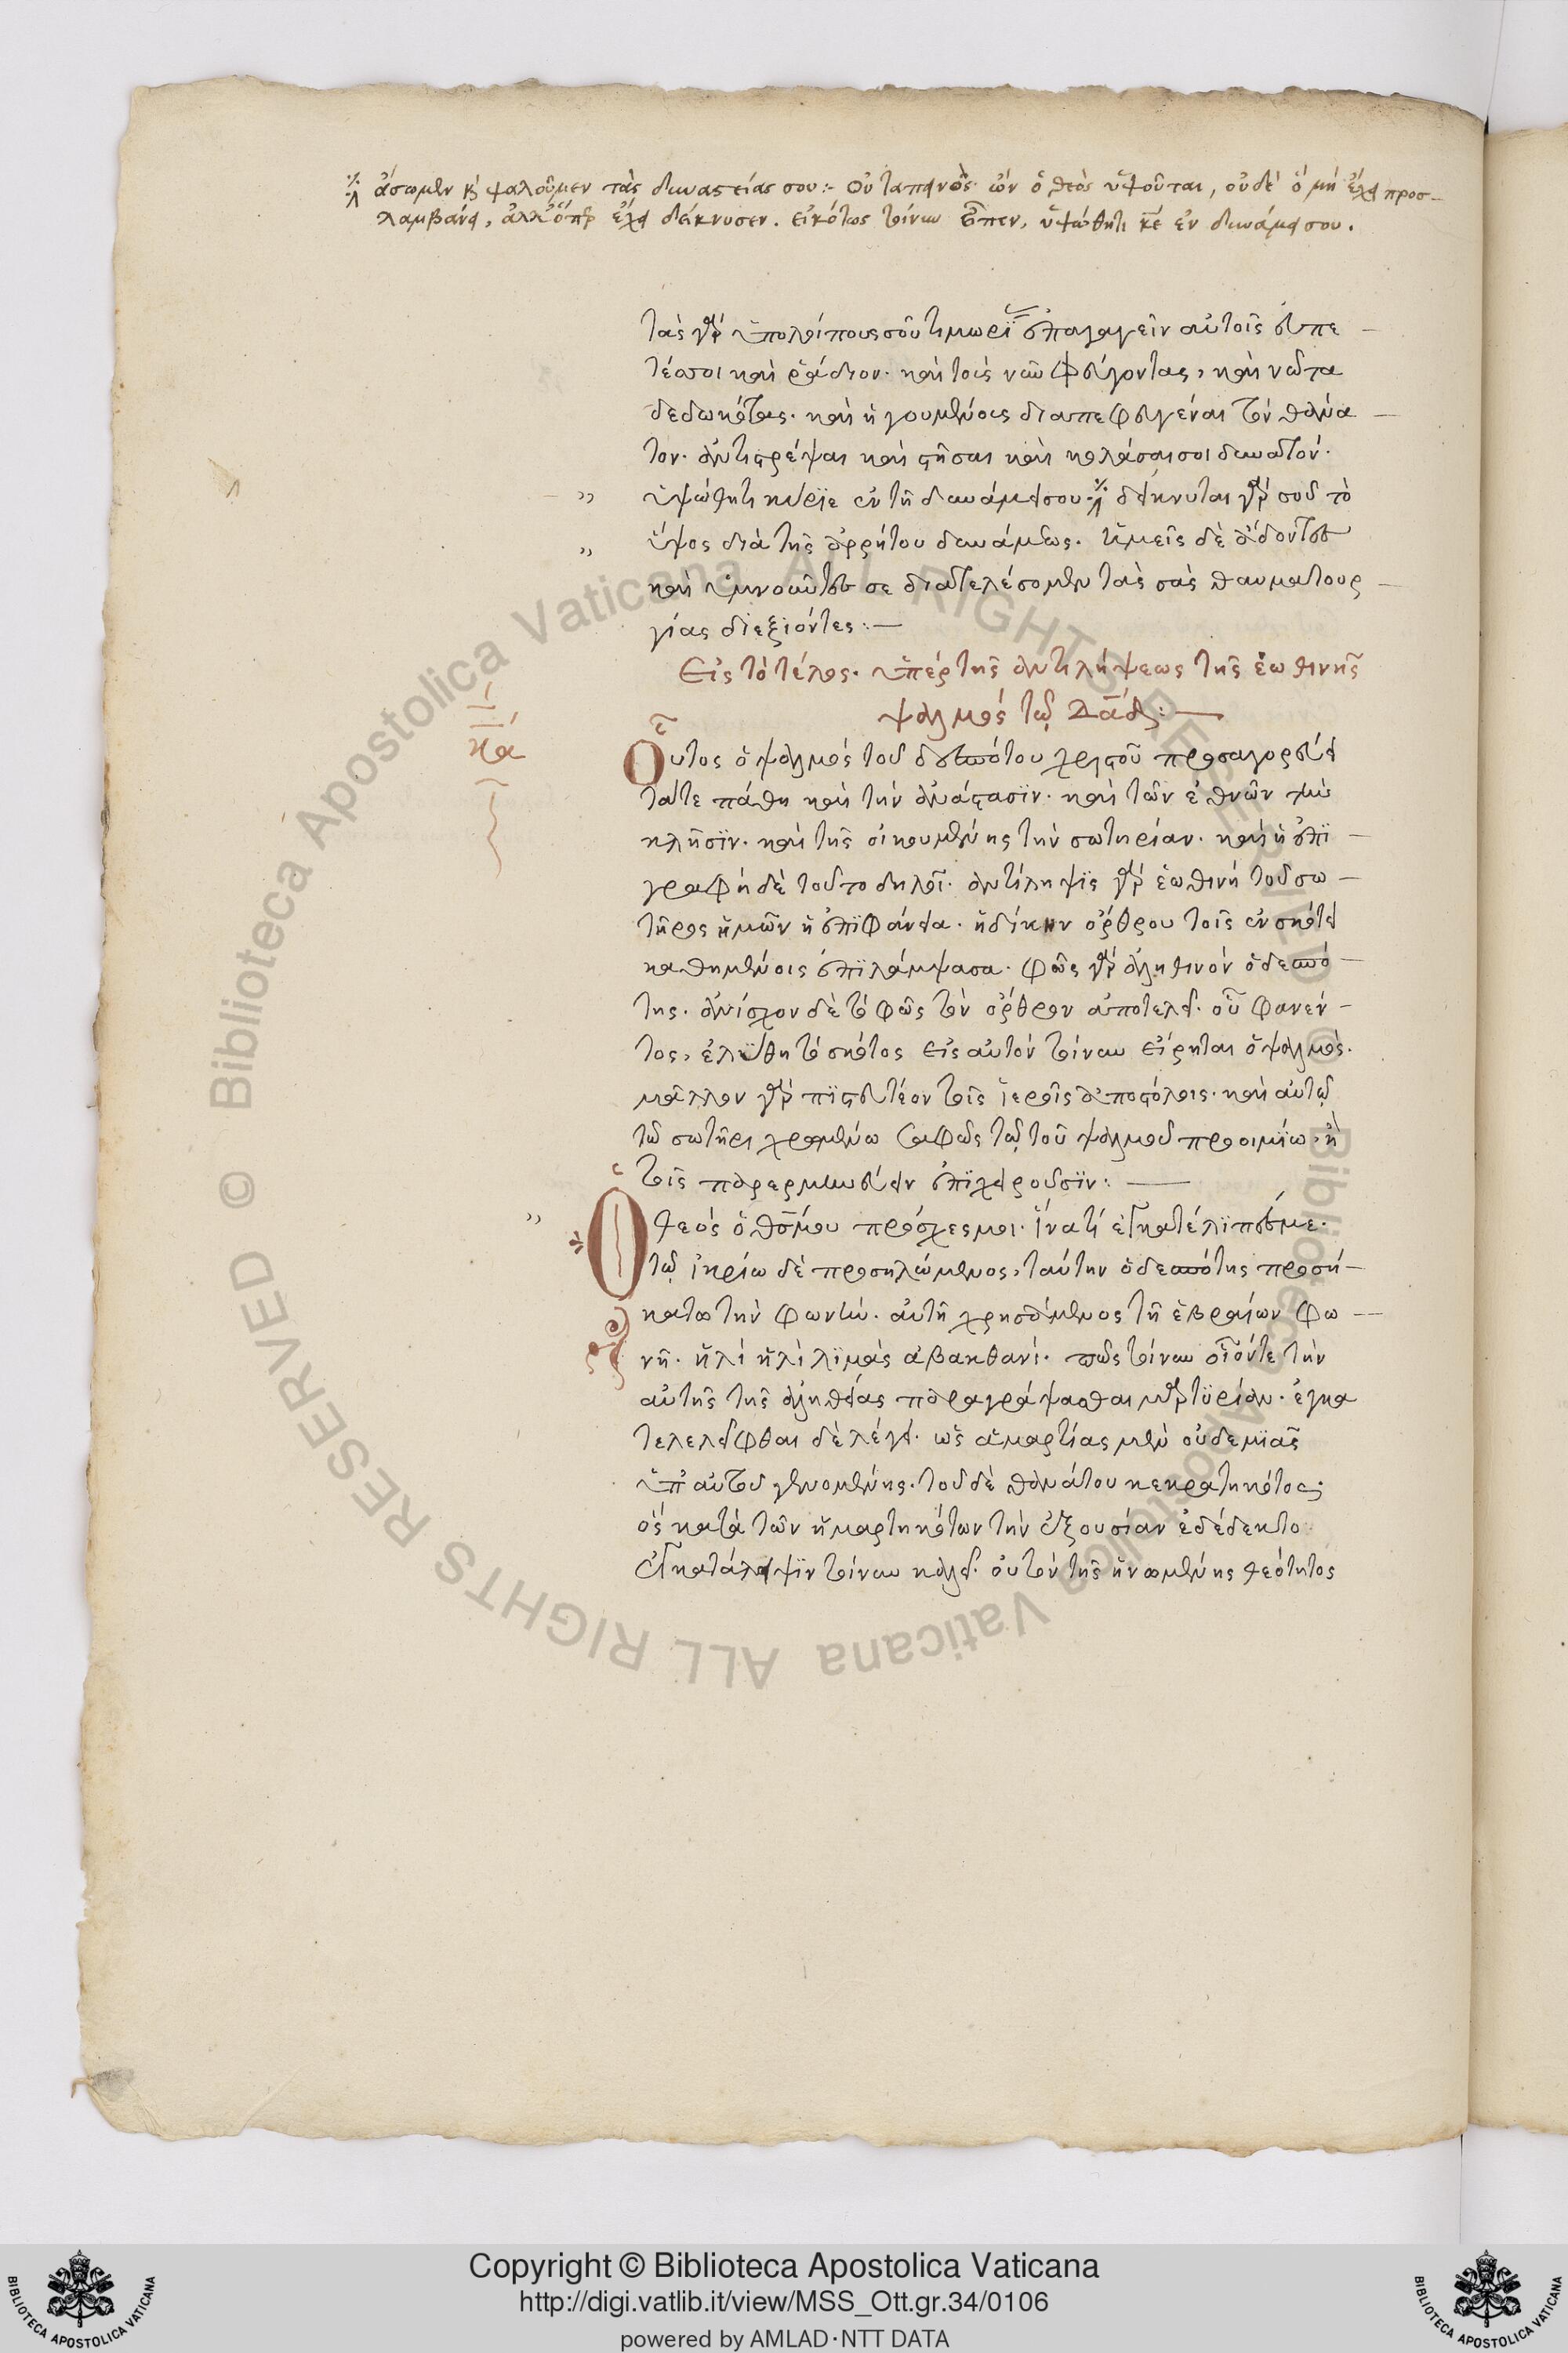 ᾄσωμεν κ ψαλοῦμεν τὰς δυναστείας σου :- Οὐ ταπεινὸς ὢν ὁ θεὸς ὑψοῦται, οὐδὲ ὃ μὴ ἔχει προσ-
λαμβάνει, ἀλλ' ὅπερ ἔχει δείκνυσιν. εἰκότως τοίνυν εἶπεν, ὑψώθητι κε ἐν δυνάμει σου.
τὰς γὰρ ὑπολοίπους σου τιμωρίας ἐπαγαγεῖν αὐτοῖς εὐπε
τές σοι καὶ ῥάδιον. καὶ τοὺς νῦν φεύγοντας, καὶ νῶτα
δεδωκότας. καὶ ἡγουμένους διαπεφευγέναι τὸν θάνα
τον. ἀντιστρέψαι καὶ στῆσαι καὶ κολάσαι σοι δυνατόν.
ὑψώθητι κύριε ἐν τῇ δυνάμει σου. δείκνυται γάρ σου τὸ
ὕψος διὰ τῆς ἀρρήτου δυνάμεως. ἡμεῖς δὲ ᾄδοντες
καὶ ὑμνοῦντές σε διατελέσομεν τὰς σὰς θαυματουρ
γίας διεξιόντες :—
Εἰς τὸ τέλος. ὑπὲρ τῆς ἀντιλήψεως τῆς ἑωθινῆς
ψαλμὸς τῷ Δαδ :—
κα
Οὗτος ὁ ψαλμὸς τοῦ δεσπότου χριστοῦ προσαγορεύει
τά τε πάθη καὶ τὴν ἀνάστασιν. καὶ τῶν ἐθνῶν τὴν
κλῆσιν. καὶ τῆς οἰκουμένης τὴν σωτηρίαν. καὶ ἡ ἐπι
γραφὴ δὲ τοῦτο δηλοῖ. ἀντίληψις γὰρ ἑωθινὴ τοῦ σω
τῆρος ἡμῶν ἡ ἐπιφάνεια. ἡ δίκην ὄρθρου τοῖς ἐν σκότει
καθημένοις ἐπιλάμψασα. φῶς γὰρ ἀληθινὸν ὁ δεσπό
της. ἀνίσχον δὲ τὸ φῶς τὸν ὄρθρον ἀποτελεῖ. οὗ φανέν
τος, ἐλύθη τὸ σκότος εἰς αὐτὸν τοίνυν εἴρηται ὁ ψαλμός.
μᾶλλον γὰρ πιστευτέον τοῖς ἱεροῖς ἀποστόλοις. καὶ αὐτῷ
τῷ σωτῆρι χρωμένω σαφῶς τῷ τοῦ ψαλμοῦ προοιμίω. ἢ
τοῖς παρερμηνεύειν ἐπιχειροῦσιν :—
Ὁ θεὸς ὁ θς μου πρόσχες μοι. ἵνα τί ἐγκατέλιπές με.
τῷ ἰκρίω δὲ προσηλώμενος, ταύτην ὁ δεσπότης προσή
κατο τὴν φωνήν. αὐτῇ χρησάμενος τῇ ἑβραίων φω
νῇ. ἠλὶ ἠλὶ λιμὰς ἀβακθανί. πῶς τοίνυν οἷόν τε τὴν
αὐτῆς τῆς ἀληθείας παραγράψασθαι μαρτυρίαν. ἐγκα
ταλελεῖφθαι δὲ λέγει. ὡς ἁμαρτίας μὲν οὐδεμιᾶς
ὑπ' αὐτοῦ γενομένης. τοῦ δὲ θανάτου κεκρατηκότος
ὃς κατὰ τῶν ἡμαρτηκότων τὴν ἐξουσίαν ἐδέδεκτο
ἐγκατάλειψιν τοίνυν καλεῖ. οὐ τὸν τῆς ἡνωμένης θεότητος
Copyright © Biblioteca Apostolica Vaticana
http://digi.vatlib.it/view/MSS_Ott.gr.34/0106
powered by AMLAD·NTT DATA
BIBLIOTECA APOSTOLICA VATICANA
BIBLIOTECA APOSTOLICA VATICANA
© Biblioteca Apostolica Vaticana ALL RIGHTS RESERVED © Biblioteca Apostolica Vaticana ALL RIGHTS RESERVED